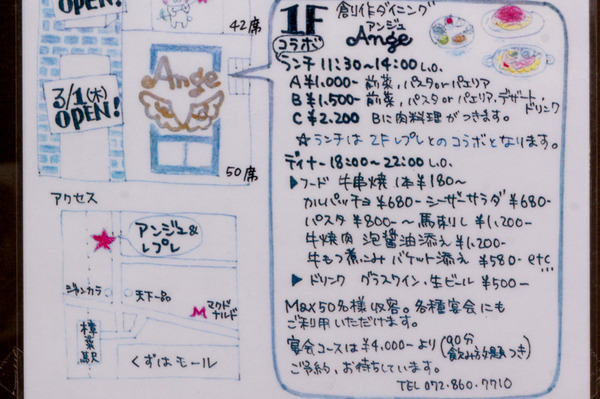 42席
OPEN!
Ange
3/1(木)
OPEN!
50席
アクセス
アンジュ&
レプレ
ジャンカラ
天下一品
マクドナルド
樟葉駅
くずはモール
1F
創作ダイニング
アンジュ
Ange
コラボ
ランチ 11:30~14:00 L.O.
A ¥1,000- 前菜,パスタorパエリア
B ¥1,500- 前菜,パスタ or パエリア,デザート,ドリンク
C ¥2,200 Bに肉料理がつきます。
☆ランチは2Fレプレとのコラボとなります。
ディナー 18:00~22:00 L.O.
▶フード 牛串焼 1本¥180~
カルパッチョ ¥680- シーザーサラダ ¥680-
パスタ ¥800~ 馬刺し ¥1,200-
牛焼肉 泡醤油添え ¥1,200-
牛もつ煮こみ バケット添え ¥580- etc...
▶ドリンク グラスワイン・生ビール ¥500-
Max50名様収容。各種宴会にも
ご利用いただけます。
宴会コースは¥4,000-より(90分飲み放題つき)
ご予約,お待ちしています。
TEL 072-860-7710